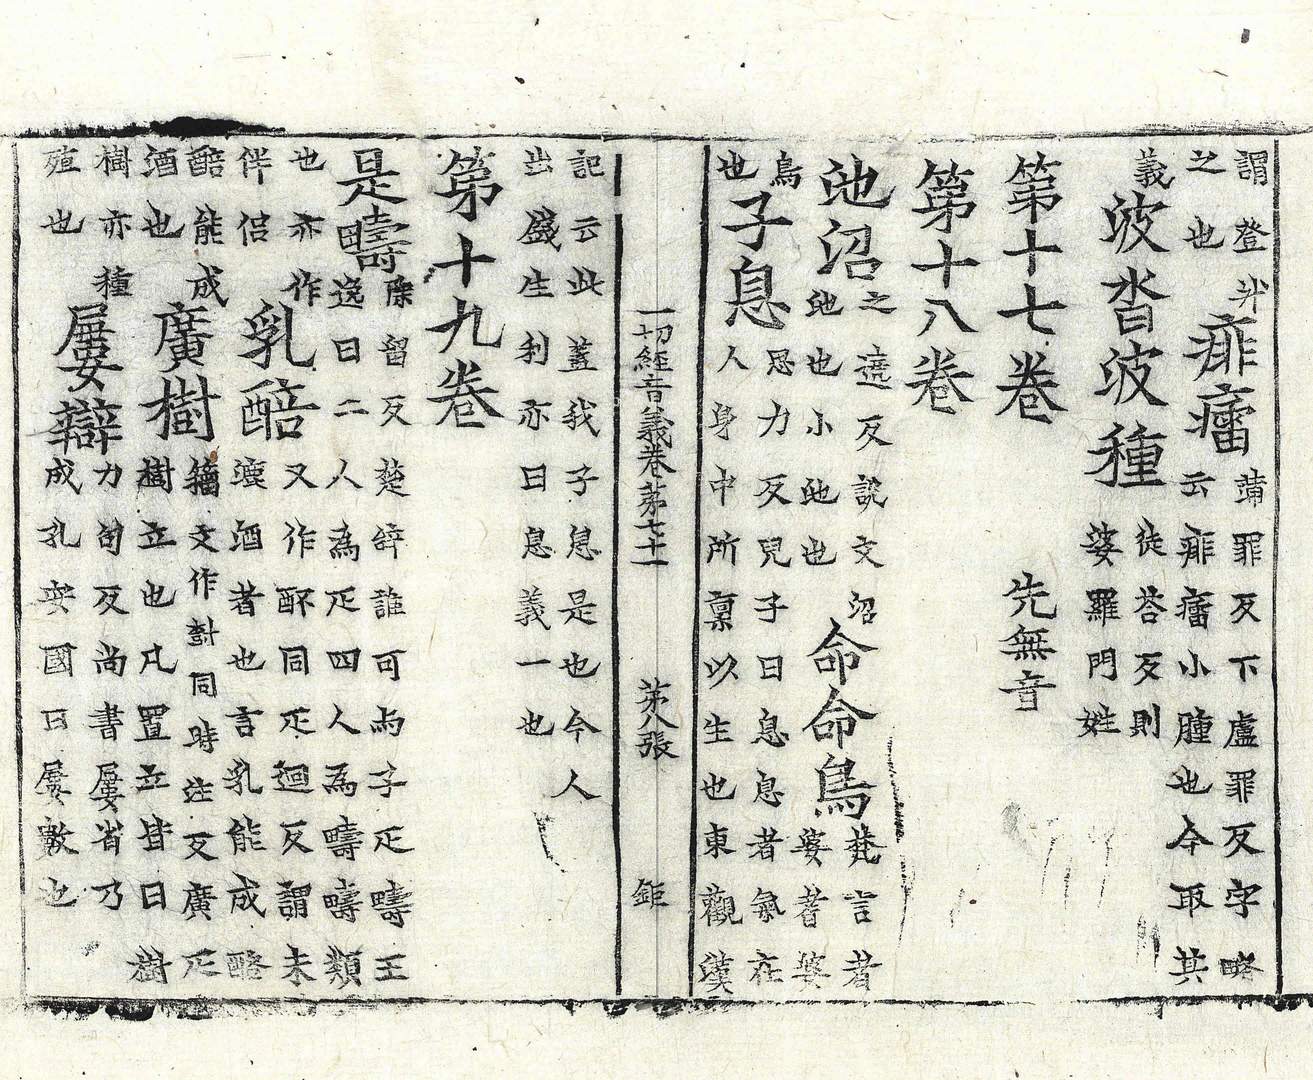 謂登升
之也
痱癗
蒲罪反下盧罪反字略
云痱癗小腫也今取其
義
波沓波種
徒荅反則
婆羅門姓
第十七卷 先無音
第十八卷
池沼
之遶反説文沼
池也小池也
命命鳥
梵言耆
婆耆婆
鳥
也
子息
思力反兒子曰息息者氣在
人身中所稟以生也東觀漢
一切經音義卷苐七十一 苐八張 鉅
記云此蓋我子息是也今人
出盛生利亦曰息義一也
第十九卷
是疇
除留反楚辞誰可与子疋疇王
逸曰二人為疋四人為疇疇類
也亦作
伴侣
乳醅
又作同疋迴反謂未
漉酒者也言乳能成酪
醅能成
酒也
廣樹
籀文作尌同時注反廣疋
樹立也凡置立皆曰樹
樹亦種
殖也
屢辯
力句反尚書屢省乃
成孔安國曰屢數也